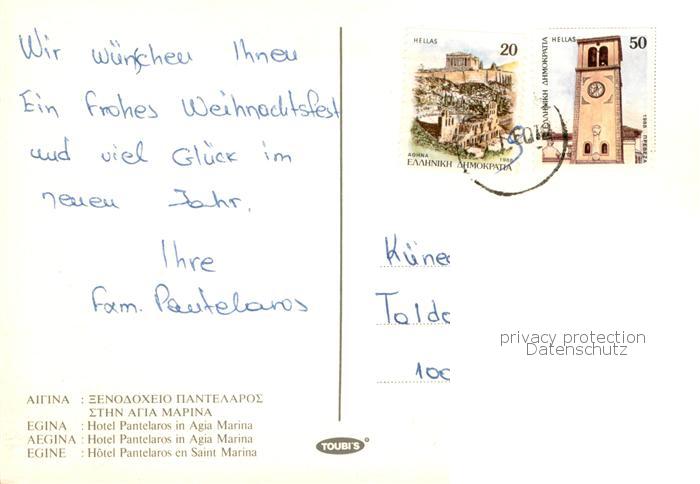 Wir wünschen Ihnen
Ein frohes Weihnachtsfest
und viel Glück im
neuen Jahr.
Ihre
Fam. Pantelaros
ΑΙΓΙΝΑ : ΞΕΝΟΔΟΧΕΙΟ ΠΑΝΤΕΛΑΡΟΣ
ΣΤΗΝ ΑΓΙΑ ΜΑΡΙΝΑ
EGINA : Hotel Pantelaros in Agia Marina
AEGINA : Hotel Pantelaros in Agia Marina
EGINE : Hôtel Pantelaros en Saint Marina
TOUBI'S
HELLAS 20
ΑΘΗΝΑ 1988
ΕΛΛΗΝΙΚΗ ΔΗΜΟΚΡΑΤΙΑ
HELLAS 50
ΕΛΛΗΝΙΚΗ ΔΗΜΟΚΡΑΤΙΑ
1988 ΠΡΕΒΕΖΑ
privacy protection
Datenschutz